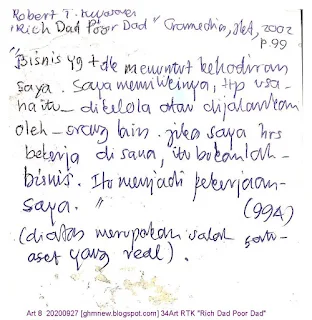 Robert T. Kiyosaki
"Rich Dad Poor Dad" Gramedia, Jkt, 2002
p.99
"Bisnis yg tdk menuntut kehadiran
saya. Saya memilikinya, ttp usa-
ha itu - dikelola atau dijalankan
oleh - orang lain. jika saya hrs
bekerja di sana, itu bukanlah -
bisnis. Ito menjadi pekerjaan-
saya. " (99A)
(diatas merupakan salah satu-
aset yang real).
Art 8 20200927 [ghmnew.blogspot.com] 34Art RTK "Rich Dad Poor Dad"